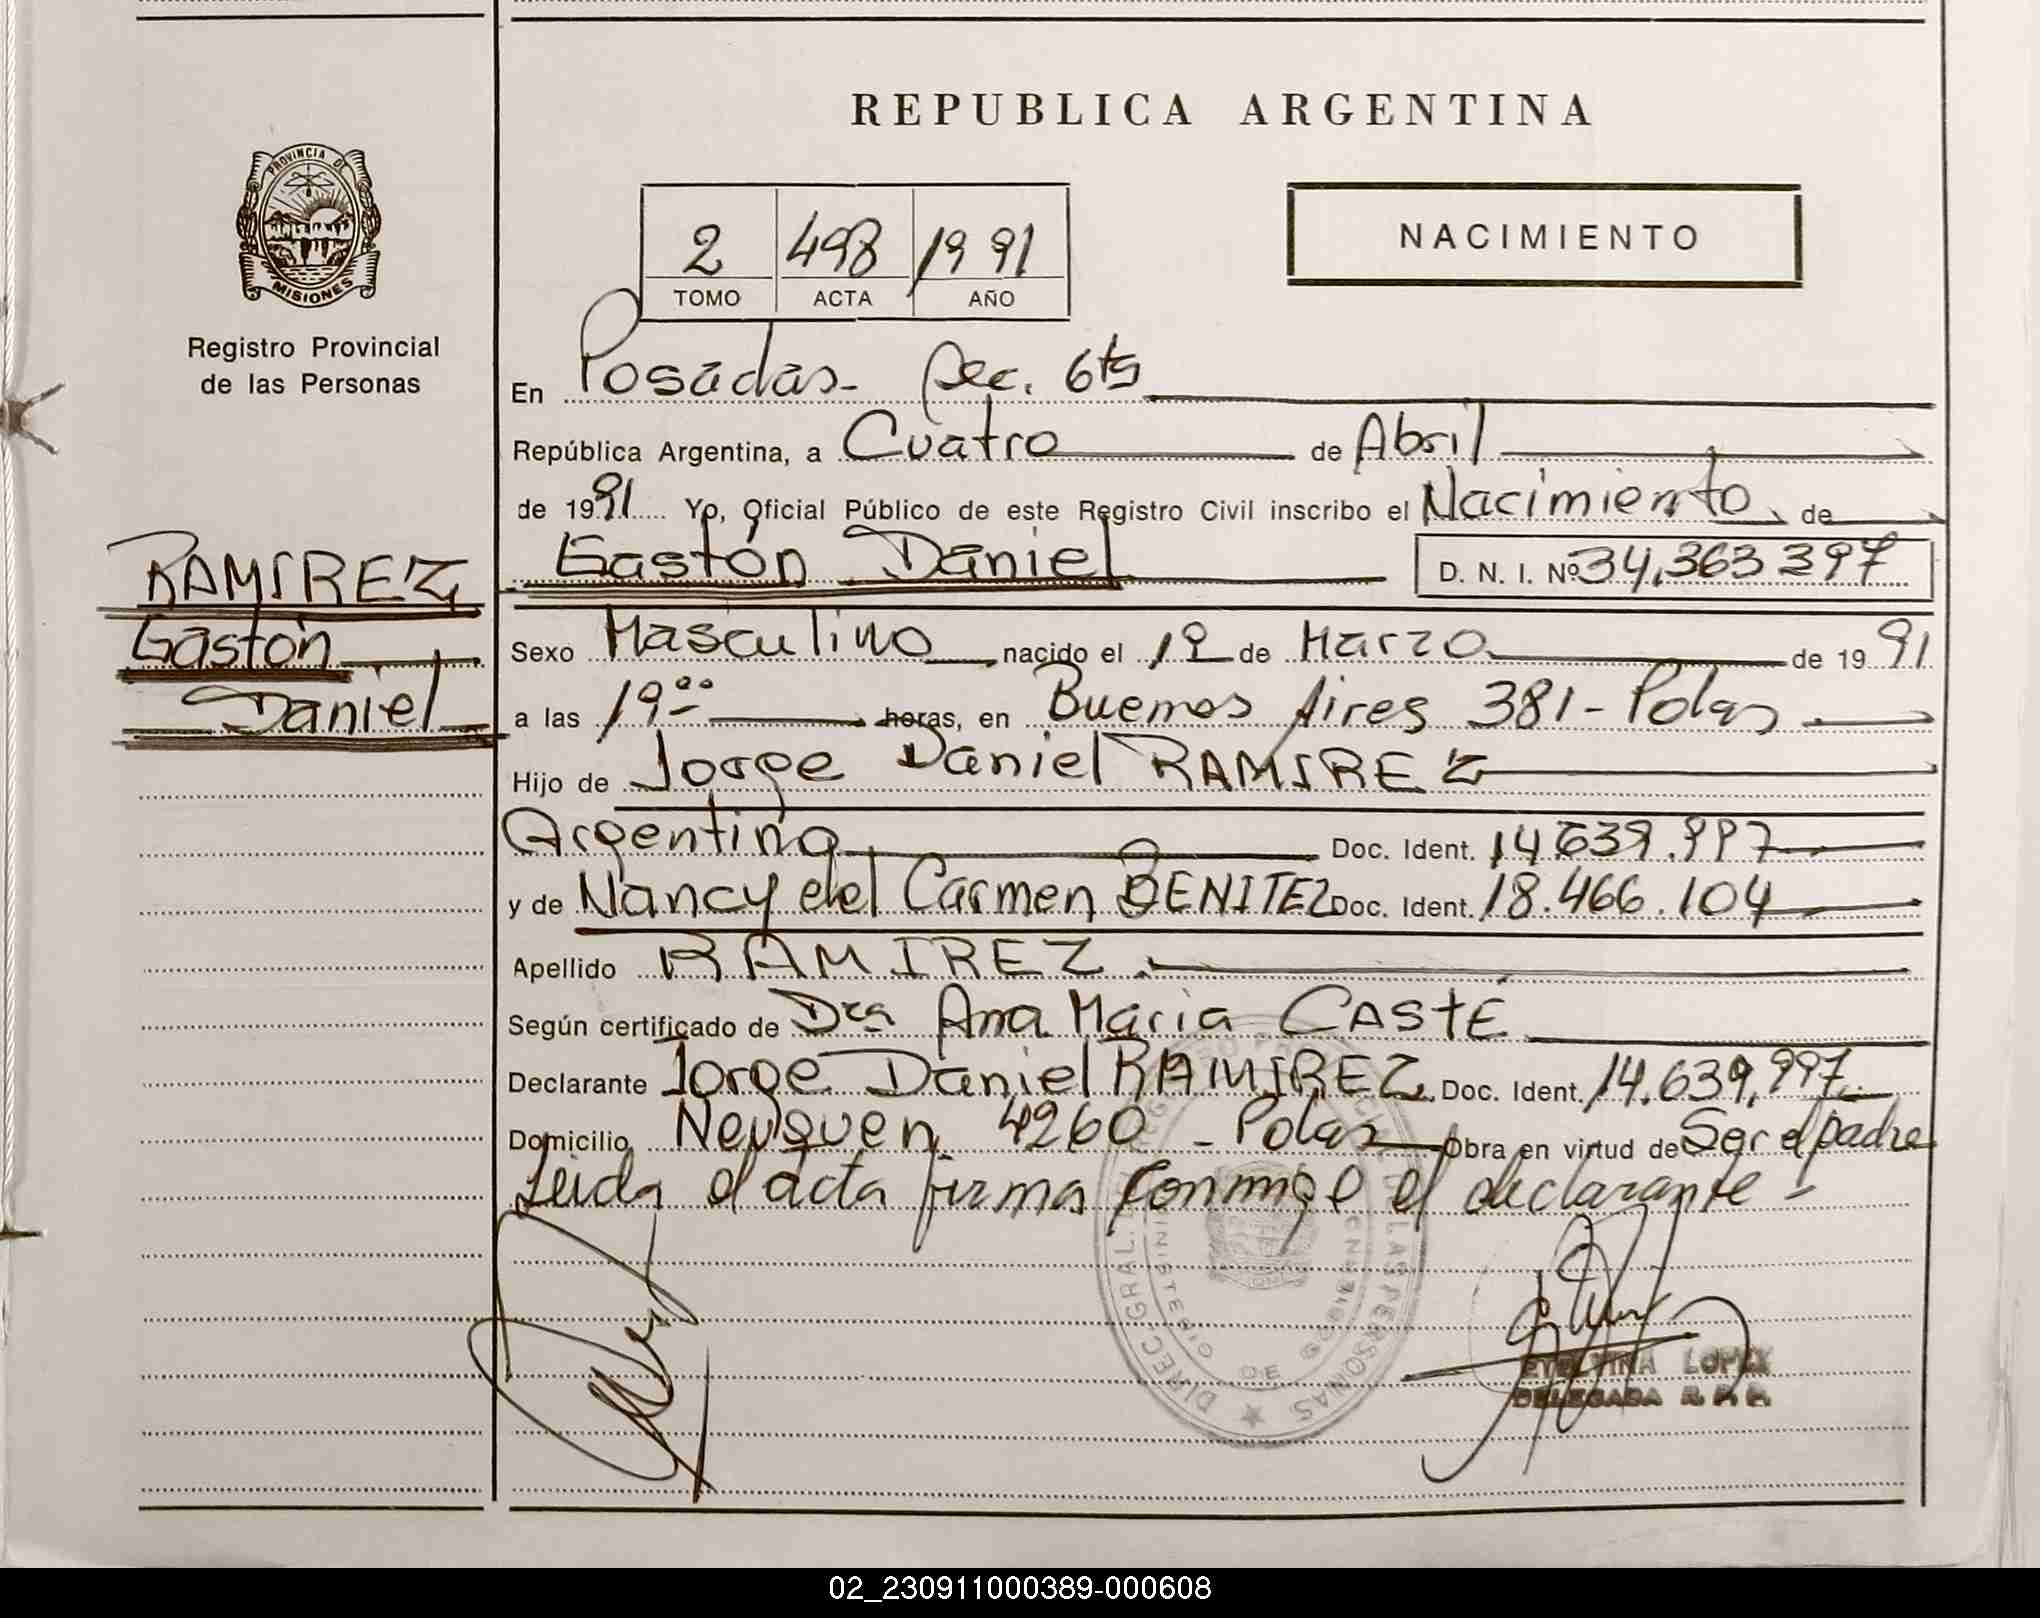 REPUBLICA ARGENTINA
PROVINCIA DE
MISIONES
Registro Provincial
de las Personas
2 498 1991
TOMO ACTA AÑO
NACIMIENTO
En Posadas - Sec. 6ta
República Argentina, a Cuatro de Abril
de 1991 Yo, Oficial Público de este Registro Civil inscribo el Nacimiento de
Gastón Daniel D. N. I. Nº 34.363 397
RAMIREZ
Gastón
Daniel
Sexo Masculino nacido el 19 de Marzo de 1991
a las 19:00 horas, en Buenos Aires 381 - Pdas
Hijo de Jorge Daniel RAMIREZ
Argentina Doc. Ident. 14.639.997
y de Nancy del Carmen BENITEZ Doc. Ident. 18.466.104
Apellido RAMIREZ
Según certificado de Dra Ana Maria CASTÉ
Declarante Jorge Daniel RAMIREZ Doc. Ident. 14.639.997
Domicilio Neuquen 4260 - Pdas Obra en virtud de Ser el padre
Leida el acta firma conmigo el declarante -
DIREC. GRAL. DE LAS PERSONAS
MINISTERIO DE GOBIERNO
ETELVINA LOPEZ
DELEGADA R. P. P.
02_230911000389-000608